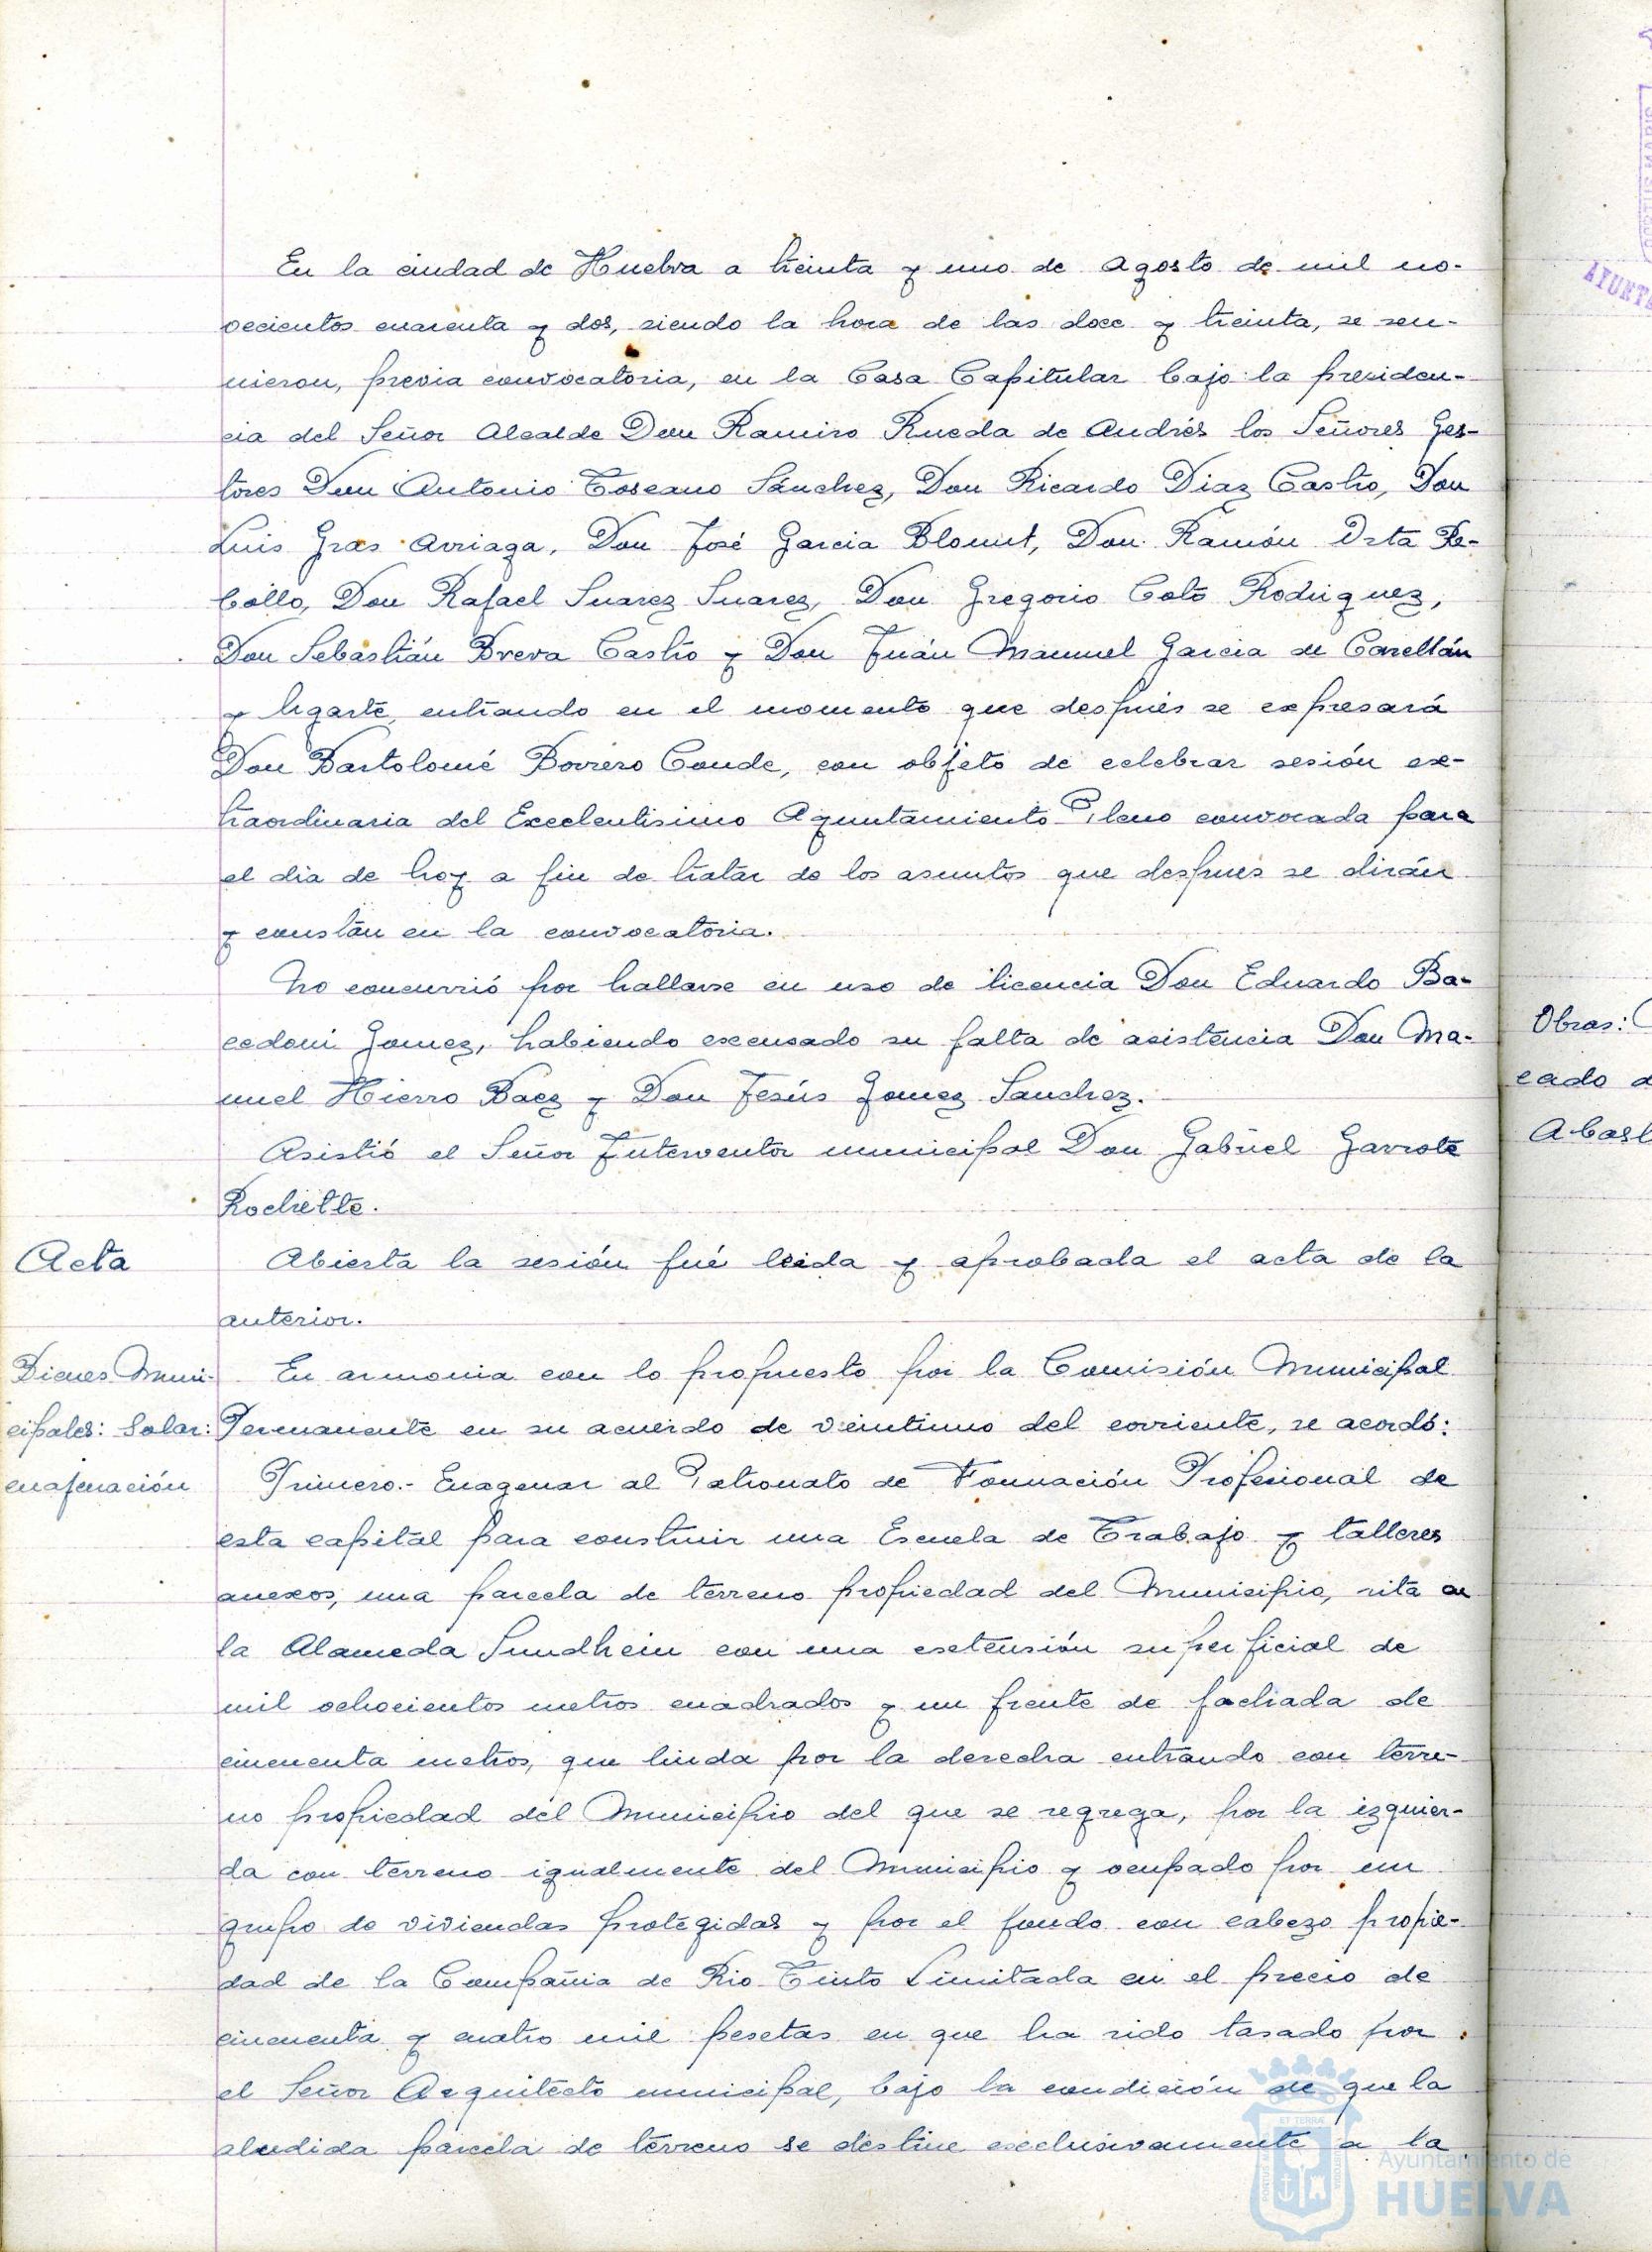 En la ciudad de Huelva a treinta y uno de Agosto de mil no-
vecientos cuarenta y dos, siendo la hora de las doce y treinta, se reu-
nieron, previa convocatoria, en la Casa Capitular bajo la presiden-
cia del Señor Alcalde Don Ramiro Rueda de Andrés los Señores Ges-
tores Don Antonio Toscano Sánchez, Don Ricardo Diaz Castro, Don
Luis Gras Arriaga, Don José Garcia Blomut, Don Ramón Orta Re-
bollo, Don Rafael Suarez Suarez, Don Gregorio Coto Rodriguez,
Don Sebastián Breva Castro y Don Juán Manuel Garcia de Carellán
y Ugarte, entrando en el momento que después se expresará
Don Bartolomé Borrero Conde, con objeto de celebrar sesión ex-
traordinaria del Excelentisimo Ayuntamiento Pleno convocada para
el dia de hoy a fin de tratar de los asuntos que despues se dirán
y constan en la convocatoria.
No concurrió por hallarse en uso de licencia Don Eduardo Ba-
cedoni Gomez, habiendo excusado su falta de asistencia Don Ma-
nuel Hierro Baez y Don Jesús Gomez Sanchez.
Asistió el Señor Interventor municipal Don Gabriel Garrote
Rochette.
Acta
Abierta la sesión fué leida y aprobada el acta de la
anterior.
Bienes Muni-
cipales: Solar:
enajenación
En armonia con lo propuesto por la Comisión Municipal
Permanente en su acuerdo de veintiuno del corriente, se acordó:
Primero.- Enagenar al Patronato de Formación Profesional de
esta capital para construir una Escuela de Trabajo y talleres
anexos, una parcela de terreno propiedad del Municipio, sita en
la Alameda Sundhein con una extensión superficial de
mil ochocientos metros cuadrados y un frente de fachada de
cincuenta metros, que linda por la derecha entrando con terre-
no propiedad del Municipio del que se segrega, por la izquier-
da con terreno igualmente del Municipio y ocupado por un
grupo de viviendas protegidas y por el fondo con cabezo propie-
dad de la Compañia de Rio Tinto Limitada en el precio de
cincuenta y cuatro mil pesetas en que ha sido tasado por
el Señor Arquitecto municipal, bajo la condición de que la
aludida parcela de terreno se destine exclusivamente a la
Obras:
cado
Ayuntamiento de
HUELVA